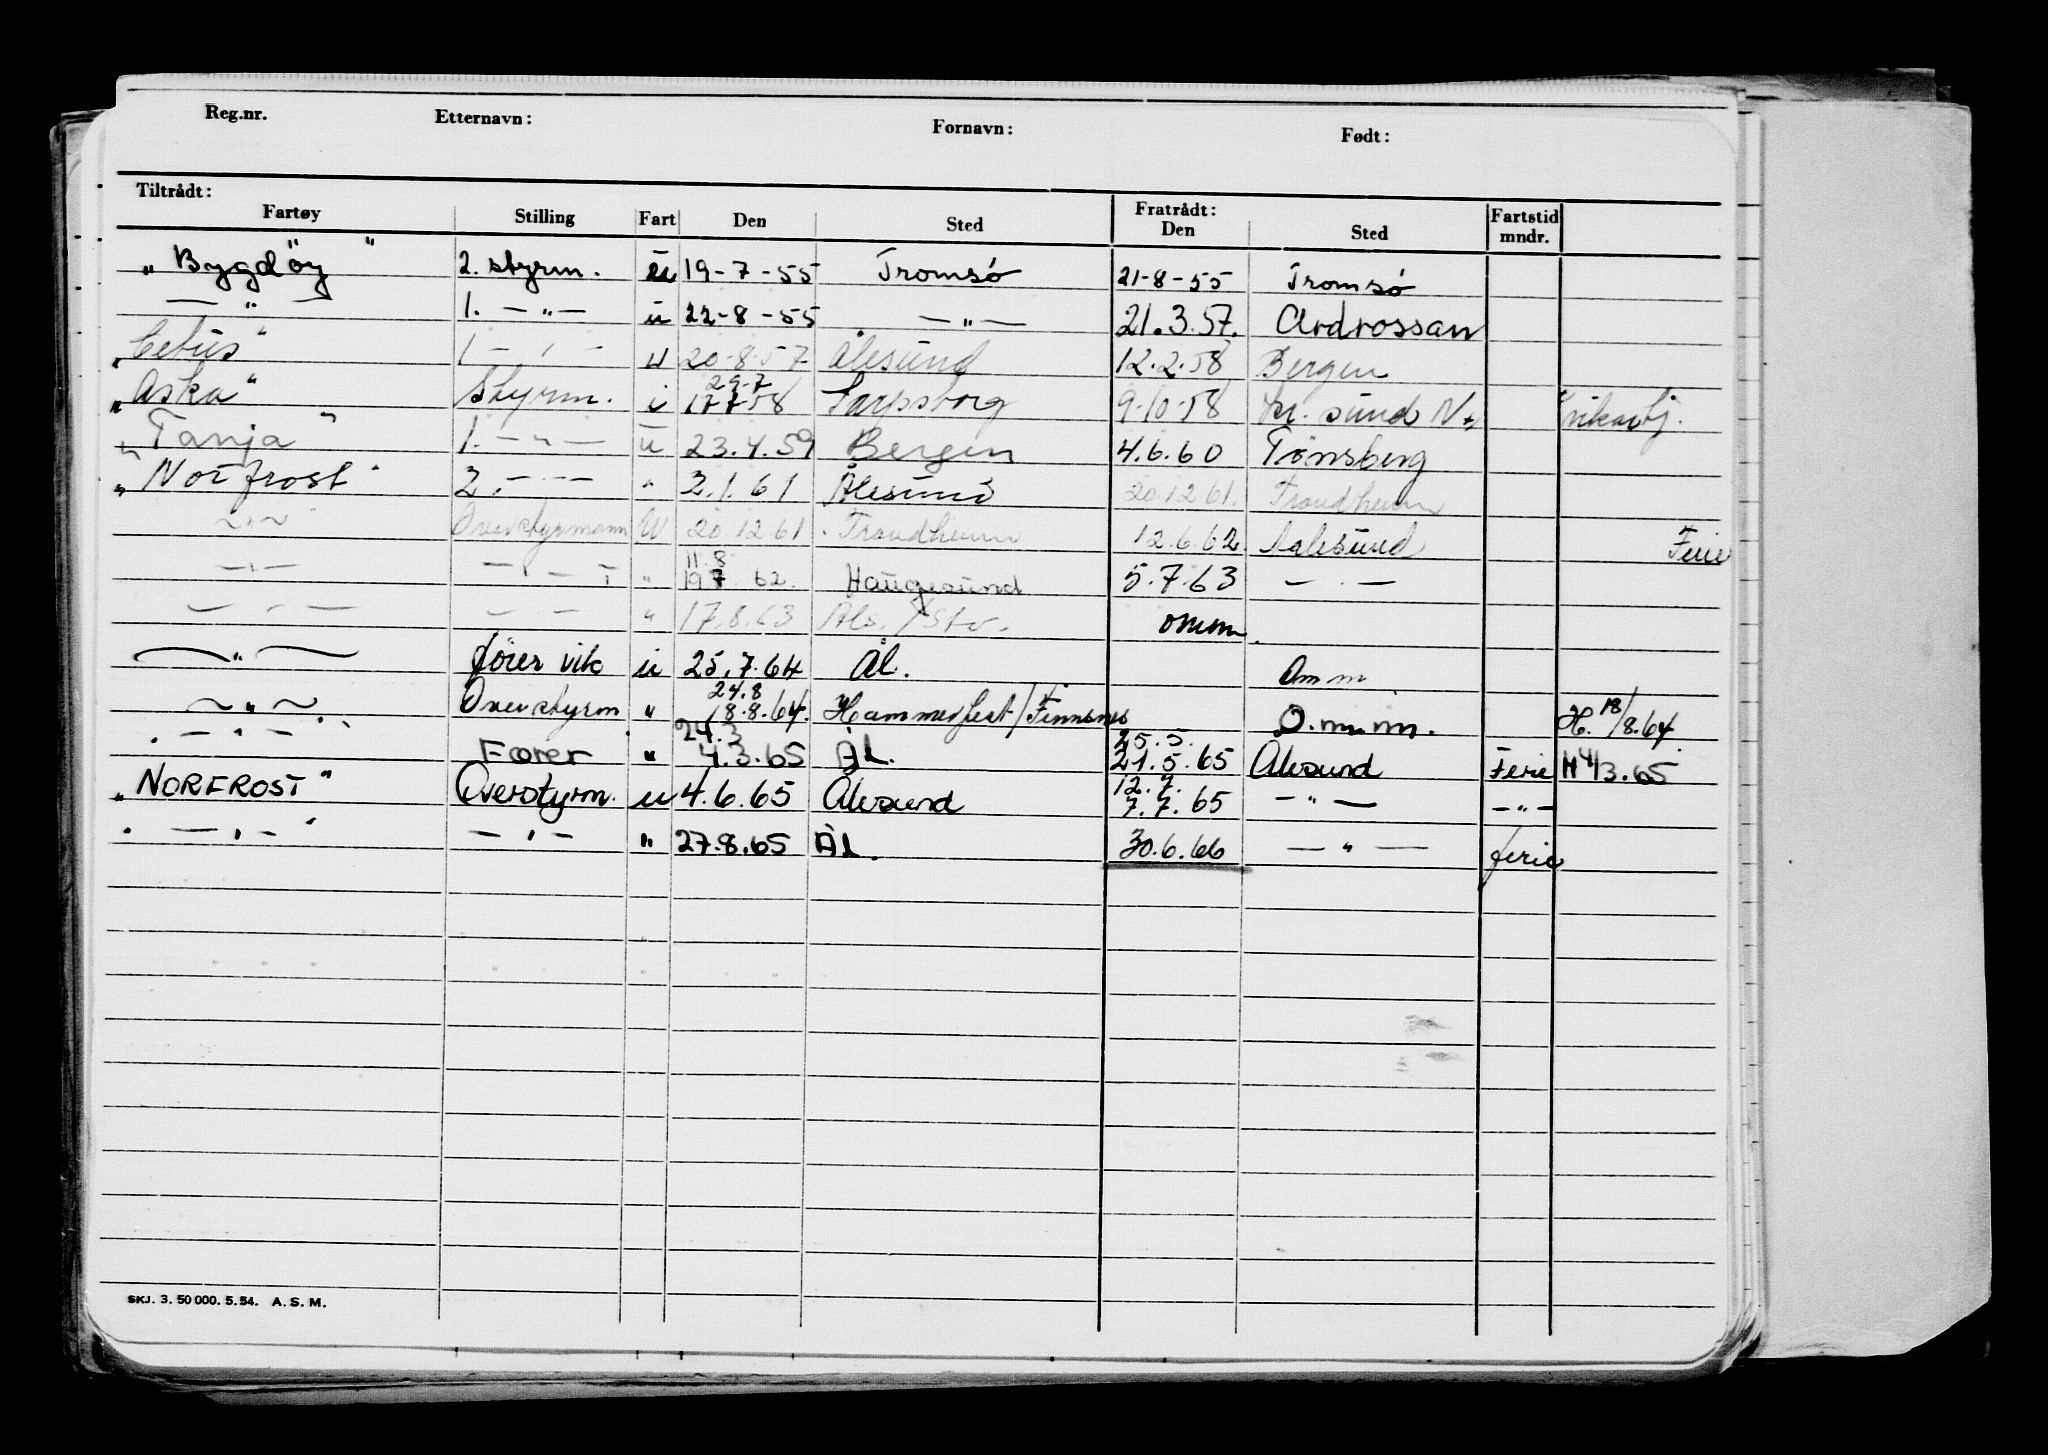 Reg.nr. Etternavn: Fornavn: Født:
Tiltrådt: Fratrådt:
Fartøy Stilling Fart Den Sted Den Sted Fartstid mndr.
„Bygdöy" 2. styrm. u 19-7-55 Tromsö 21-8-55 Tromsö
—"— 1. —"— u 22-8-55 —"— 21.3.57. Ardrossan
„Cetus" 1 — " — u 20-8-57 Ålesund 12.2.58 Bergen
„Aska" Styrm. u 29-7 17.7.58 Sarpsborg 9-10-58 Kr. sund N. vikarbj.
„Tanja" 1. —"— u 23.4.59 Bergen 4.6.60 Tönsberg
„Norfrost" 2. —"— " 2.1.61 Ålesund 20.12.61. Trondheim
—"— Overstyrmann U 20.12.61 Trondheim 12.6.62 Aalesund Ferie
—"— —"— " 11.8 19.7.62. Haugesund 5.7.63 —"—
—"— —"— " 17.8.63 Åls. / Stv. omm.
—"— förer vik u 25.7.64 Ål. Omm
—"— Overstyrm " 24.8 18.8.64. Hammerfest/Finnsnes O.m.m. H. 18/8.64
—"— Fører " 24.3 4.3.65 ÅL. 25.5. 21.5.65 Ålesund Ferie H 4/3.65
„NORFROST" Overstyrm. u 4.6.65 Ålesund 12.7. 7.7.65 —"— —"—
—"— —"— " 27.8.65 ÅL. 30.6.66 —"— ferie
SKJ. 3. 50 000. 5. 54. A. S. M.